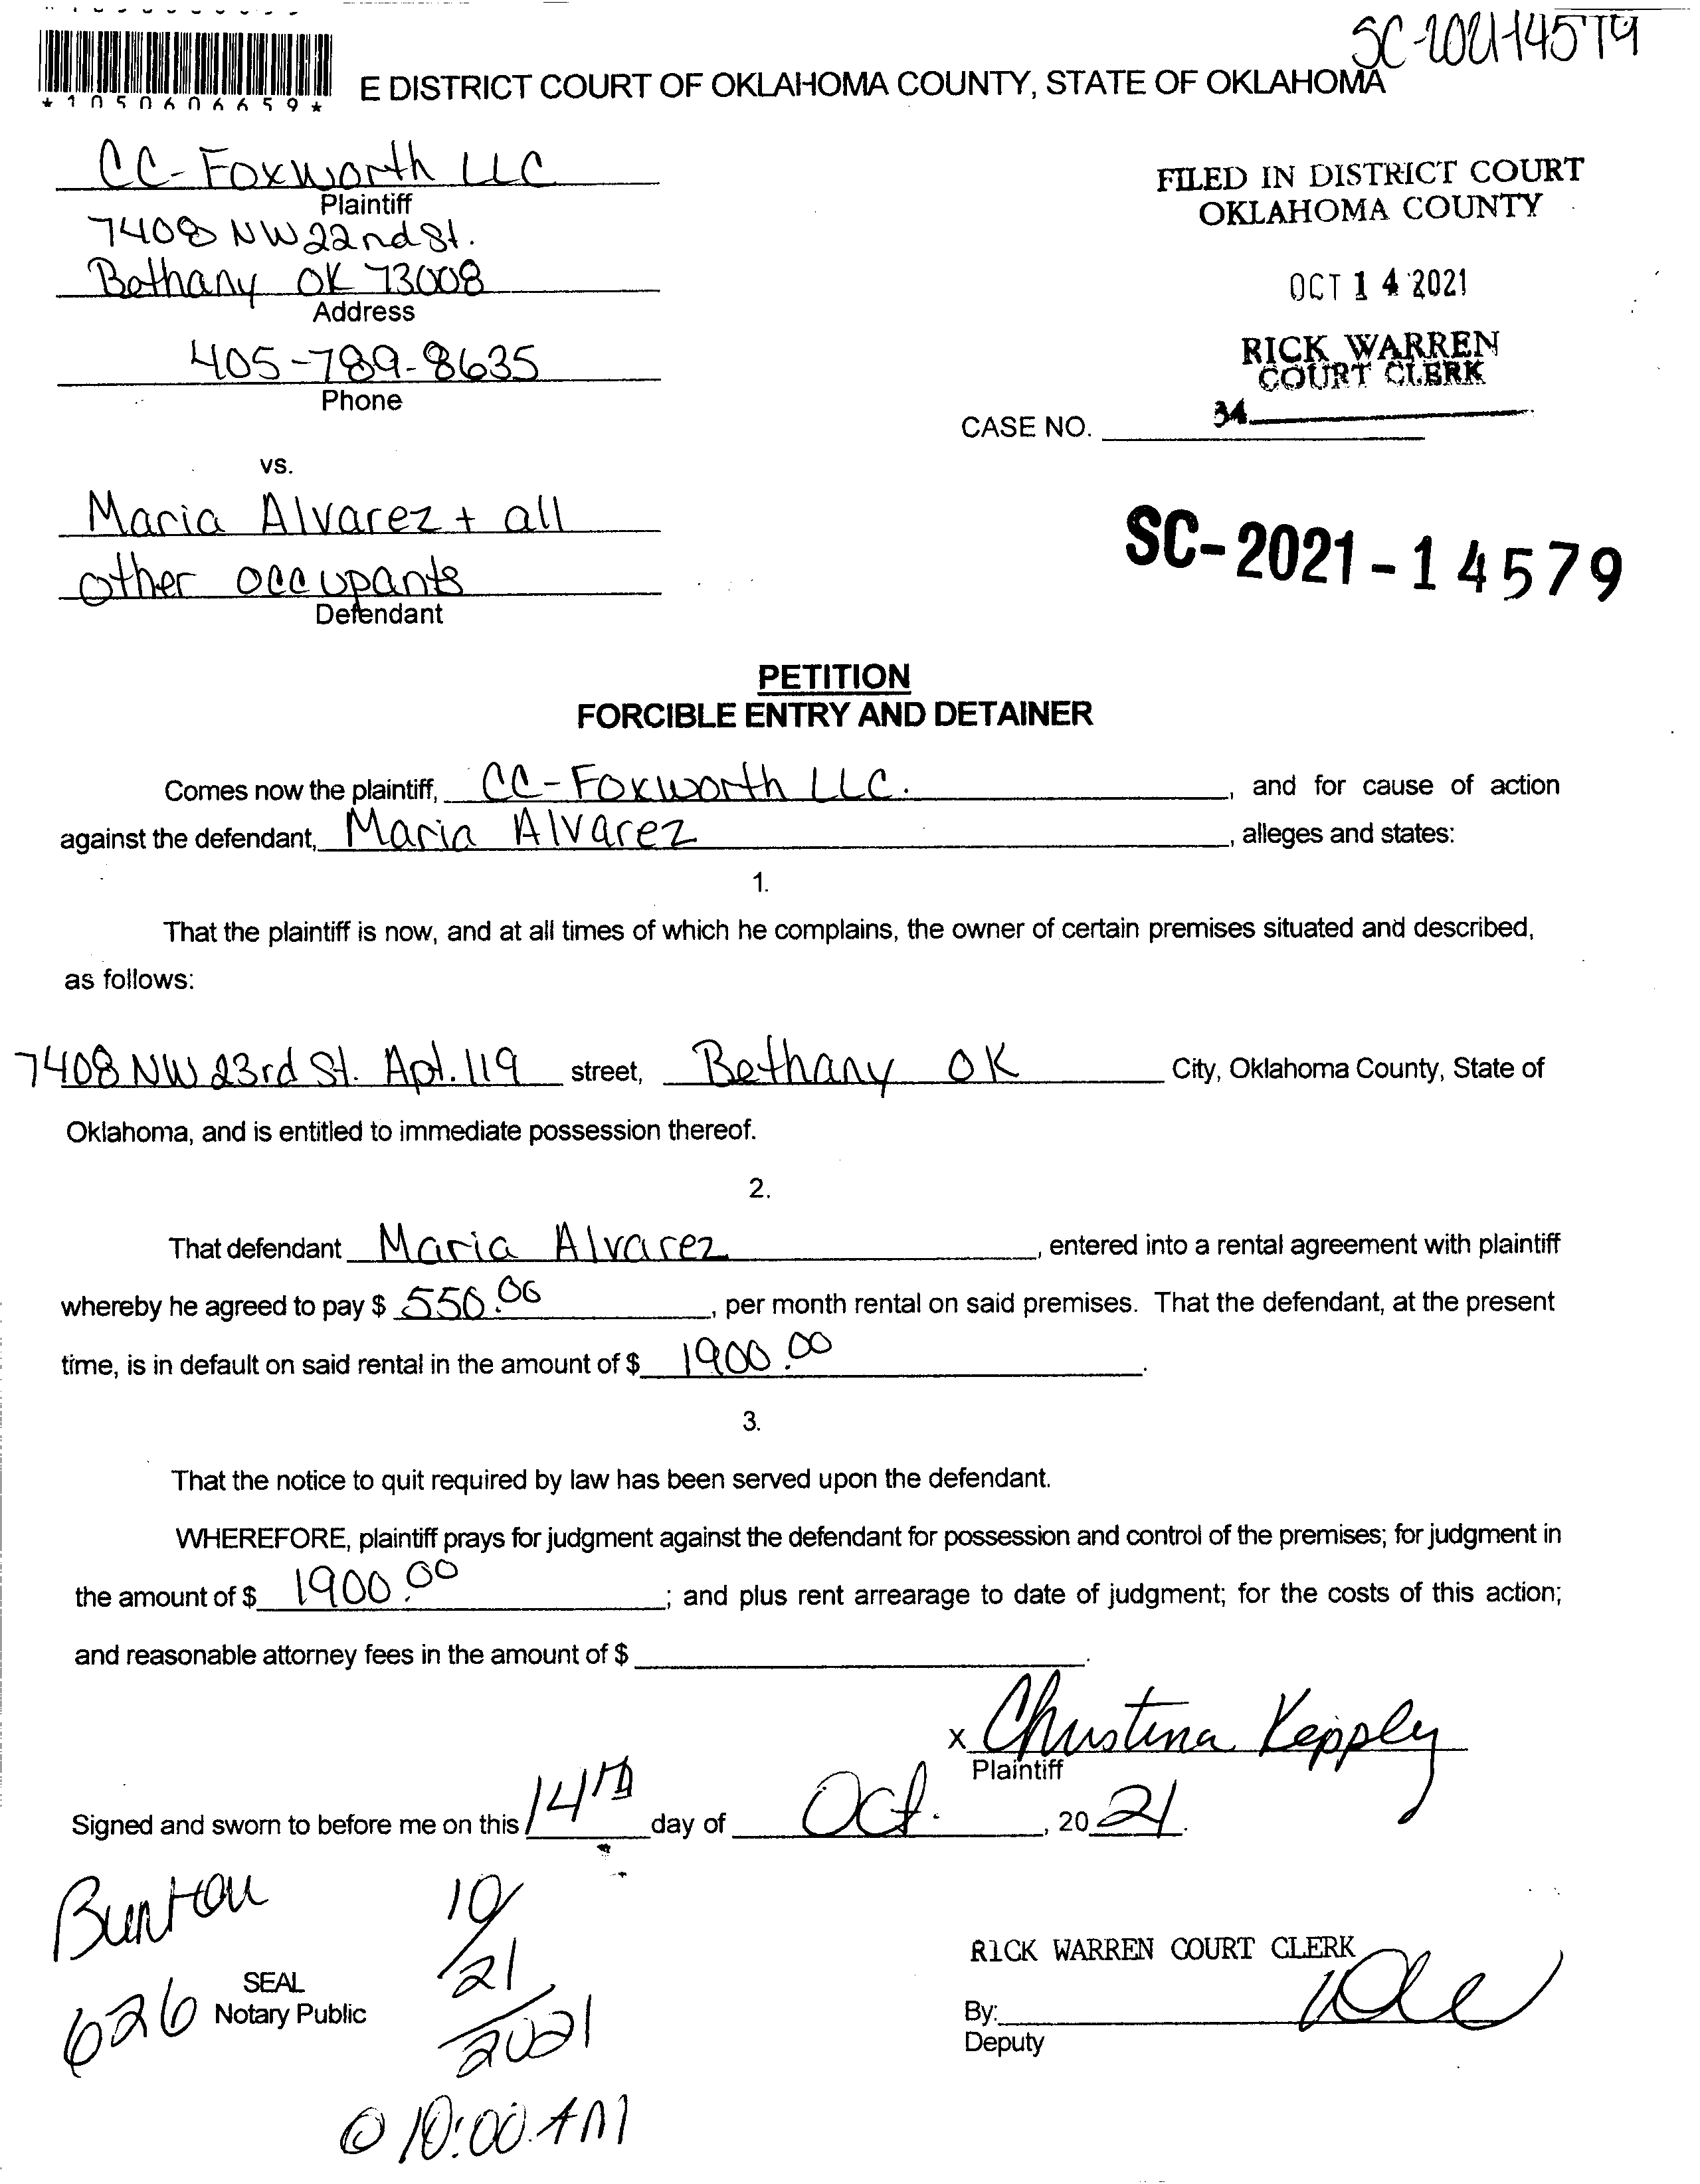 SC-2021-14579
*1050606659*
E DISTRICT COURT OF OKLAHOMA COUNTY, STATE OF OKLAHOMA
CC-Foxworth LLC
Plaintiff
7408 NW 22nd St.
Bethany OK 73008
Address
405-789-8635
Phone
FILED IN DISTRICT COURT
OKLAHOMA COUNTY
OCT 14 2021
RICK WARREN
COURT CLERK
34
CASE NO.
vs.
Maria Alvarez + all
other occupants
Defendant
SC-2021-14579
PETITION
FORCIBLE ENTRY AND DETAINER
Comes now the plaintiff, CC-Foxworth LLC. , and for cause of action
against the defendant, Maria Alvarez , alleges and states:
1.
That the plaintiff is now, and at all times of which he complains, the owner of certain premises situated and described,
as follows:
7408 NW 23rd St. Apt. 119 street, Bethany OK City, Oklahoma County, State of
Oklahoma, and is entitled to immediate possession thereof.
2.
That defendant Maria Alvarez , entered into a rental agreement with plaintiff
whereby he agreed to pay $ 550.00 , per month rental on said premises. That the defendant, at the present
time, is in default on said rental in the amount of $ 1900.00 .
3.
That the notice to quit required by law has been served upon the defendant.
WHEREFORE, plaintiff prays for judgment against the defendant for possession and control of the premises; for judgment in
the amount of $ 1900.00 ; and plus rent arrearage to date of judgment; for the costs of this action;
and reasonable attorney fees in the amount of $ .
x Christina Kepply
Plaintiff
Signed and sworn to before me on this 14th day of Oct. , 20 21.
Burton
626
SEAL
Notary Public
10/
21/
2021
@ 10:00 AM
RICK WARREN COURT CLERK
By:
Deputy